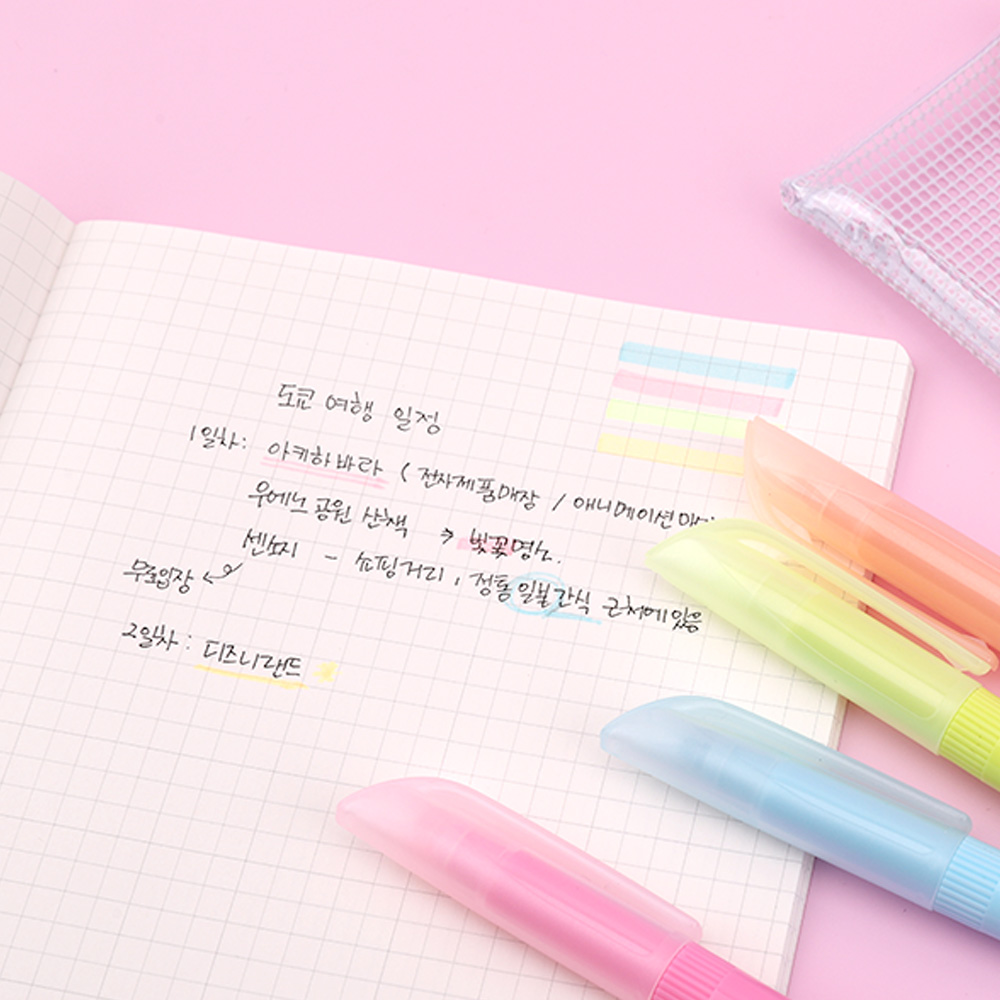 도쿄 여행 일정
1일차: 아키하바라 (전자제품매장 / 애니메이션
우에노 공원 산책 → 벚꽃명소.
센소지 - 쇼핑거리, 정통 일본간식 근처에 있음
무료입장
2일차: 디즈니랜드